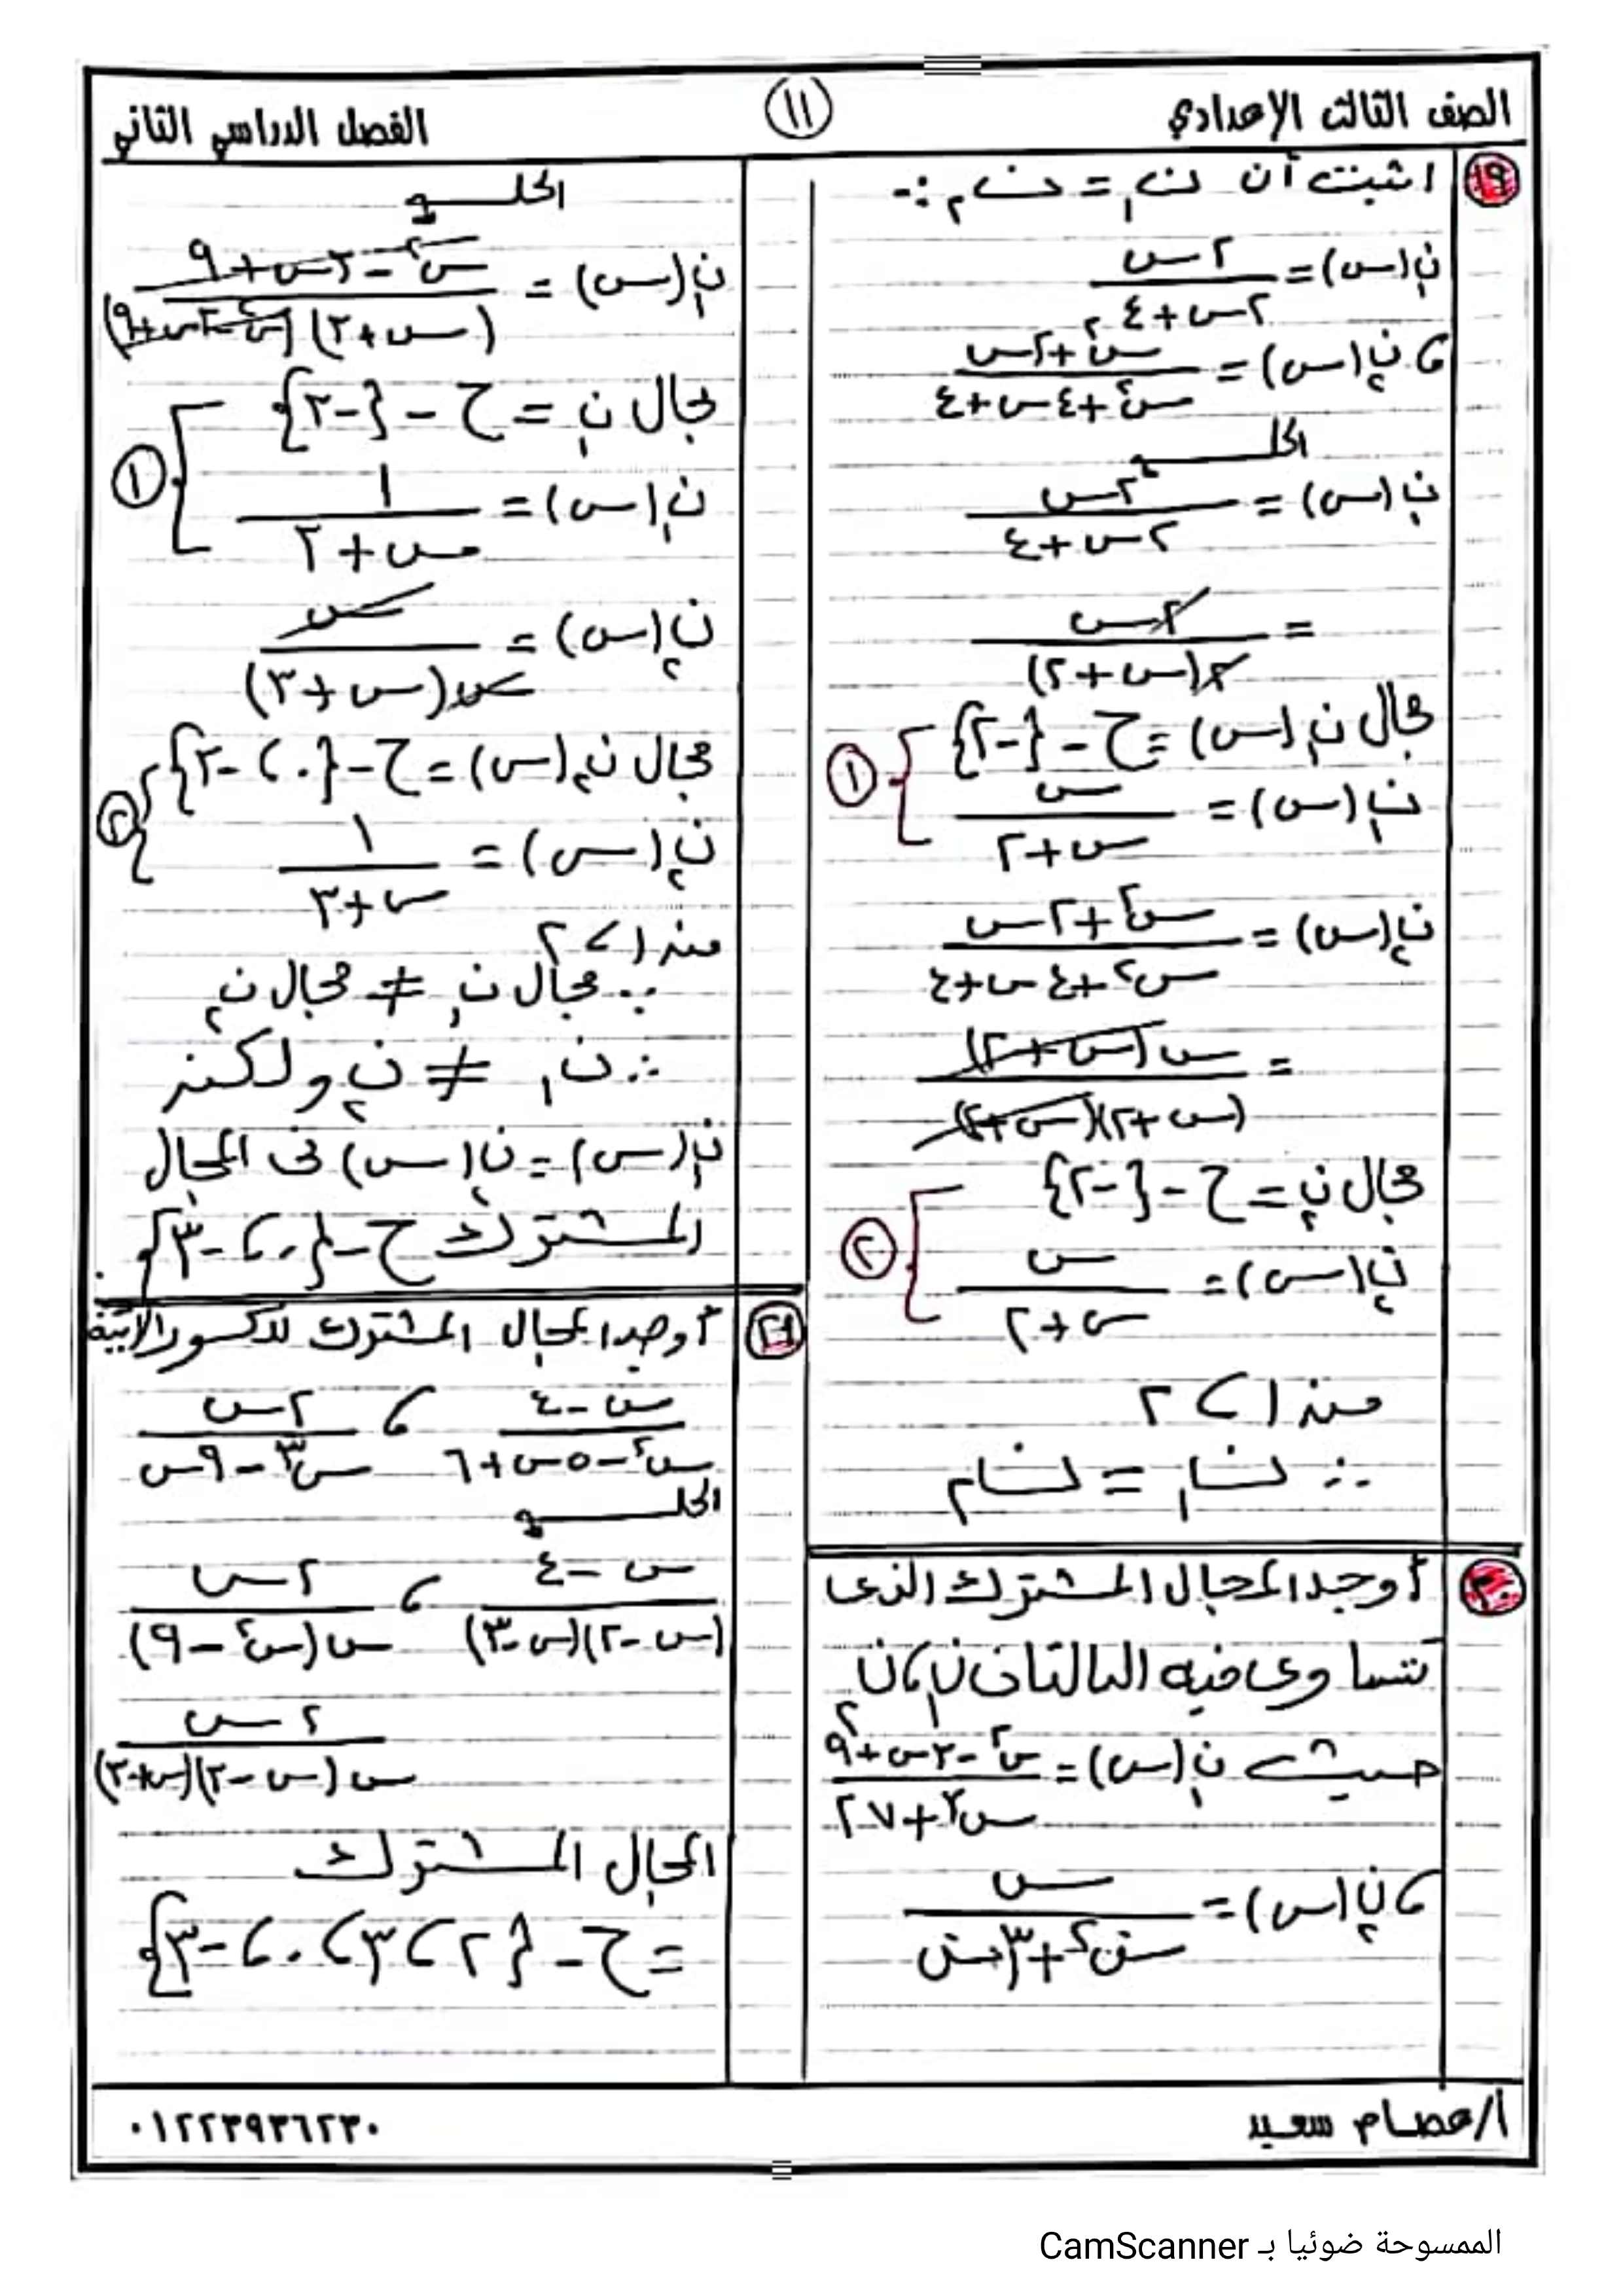 الصف الثالث الإعدادي
١١
الفصل الدراسي الثاني
١٩ اثبت أن ن١ = ن٢ :-
ن١(س) = ٢س / ٢س+٤
، ن٢(س) = س٢+٢س / س٢+٤س+٤
الحل
ن١(س) = ٢س / ٢س+٤
= ٢س / ٢(س+٢)
مجال ن١(س) = ح - {-٢}
ن١(س) = س / س+٢
١
ن٢(س) = س٢+٢س / س٢+٤س+٤
= س(س+٢) / (س+٢)(س+٢)
مجال ن٢ = ح - {-٢}
ن٢(س) = س / س+٢
٢
من ١، ٢
∴ ن١ = ن٢
٢٠ أوجد المجال المشترك الذى
تتساوى فيه الدالتان ن١، ن٢
حيث ن١(س) = س٢-٣س+٩ / س٣+٢٧
، ن٢(س) = س / س٢+٣س
الحل
ن١(س) = س٢-٣س+٩ / (س+٣)(س٢-٣س+٩)
مجال ن١ = ح - {-٣}
ن١(س) = ١ / س+٣
١
ن٢(س) = س / س(س+٣)
مجال ن٢(س) = ح - {٠، -٣}
ن٢(س) = ١ / س+٣
٢
من ١، ٢
∵ مجال ن١ ≠ مجال ن٢
∴ ن١ ≠ ن٢ ولكن
ن١(س) = ن٢(س) فى المجال
المشترك ح - {٠، -٣}
٢١ أوجد المجال المشترك للكسور الآتية
س-٤ / س٢-٥س+٦ ، ٢س / س٣-٩س
الحل
س-٤ / (س-٢)(س-٣) ، ٢س / س(س٢-٩)
٢س / س(س-٣)(س+٣)
المجال المشترك
= ح - {٢، ٣، ٠، -٣}
أ/عصام سعيد
٠١٢٢٣٩٣٦٢٣٠
الممسوحة ضوئيا بـ CamScanner